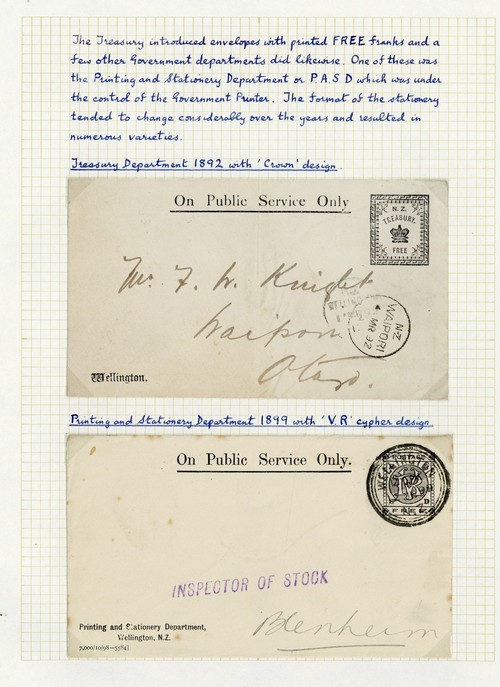 The Treasury introduced envelopes with printed FREE franks and a
few other Government departments did likewise. One of these was
the Printing and Stationery Department or P.A.S.D which was under
the control of the Government Printer. The format of the stationery
tended to change considerably over the years and resulted in
numerous varieties.
Treasury Department 1892 with 'Crown' design.
On Public Service Only
N.Z.
TREASURY.
FREE
Mr. F. W. Knight
Waipori
Otago.
N.Z
WAIPORI
MR 92
Wellington.
Printing and Stationery Department 1899 with 'V.R' cypher design.
On Public Service Only.
POSTAGE
WELLINGTON
FREE
INSPECTOR OF STOCK
Blenheim
Printing and Stationery Department,
Wellington, N.Z.
7,000/10/98—5584]